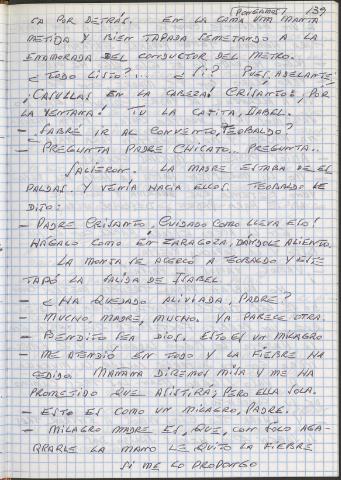 (PONGAMOS) 139
CA POR DETRÁS. EN LA CAMA UNA MANTA
METIDA Y BIEN TAPADA SEMEJANDO A LA
ENAMORADA DEL CONDUCTOR DEL METRO.
¿TODO LISTO?... ¿SI? PUES, ADELANTE;
¡CASULLAS EN LA CABEZA! CRISANTO, POR
LA VENTANA! TU LA CAPITA, ISABEL.
- SABRÉ IR AL CONVENTO, TEOBALDO?
- PREGUNTA PADRE CHICATO.. PREGUNTA..
SALIERON. LA MADRE ESTABA DE ES
PALDAS. Y VENÍA HACIA ELLOS. TEOBALDO LE
DIJO:
- PADRE CRISANTO, CUIDADO COMO LLEVA ESO!
HÁGALO COMO EN ZARAGOZA, DÁNDOLE ALIENTO.
LA MONJA SE ACERCÓ A TEOBALDO Y ESTE
TAPÓ LA SALIDA DE ISABEL
- ¿HA QUEDADO ALIVIADA, PADRE?
- MUCHO, MADRE, MUCHO. YA PARECE OTRA.
- BENDITO SEA DIOS. ESTO ES UN MILAGRO
- ME ATENDIÓ EN TODO Y LA FIEBRE HA
CEDIDO. MAÑANA DIREMOS MISA Y ME HA
PROMETIDO QUE ASISTIRÁ, PERO ELLA SOLA.
- ESTO ES COMO UN MILAGRO, PADRE.
- MILAGRO MADRE ES, QUE, CON SOLO AGA-
RRARLE LA MANO LE QUITO LA FIEBRE
SI ME LO PROPONGO